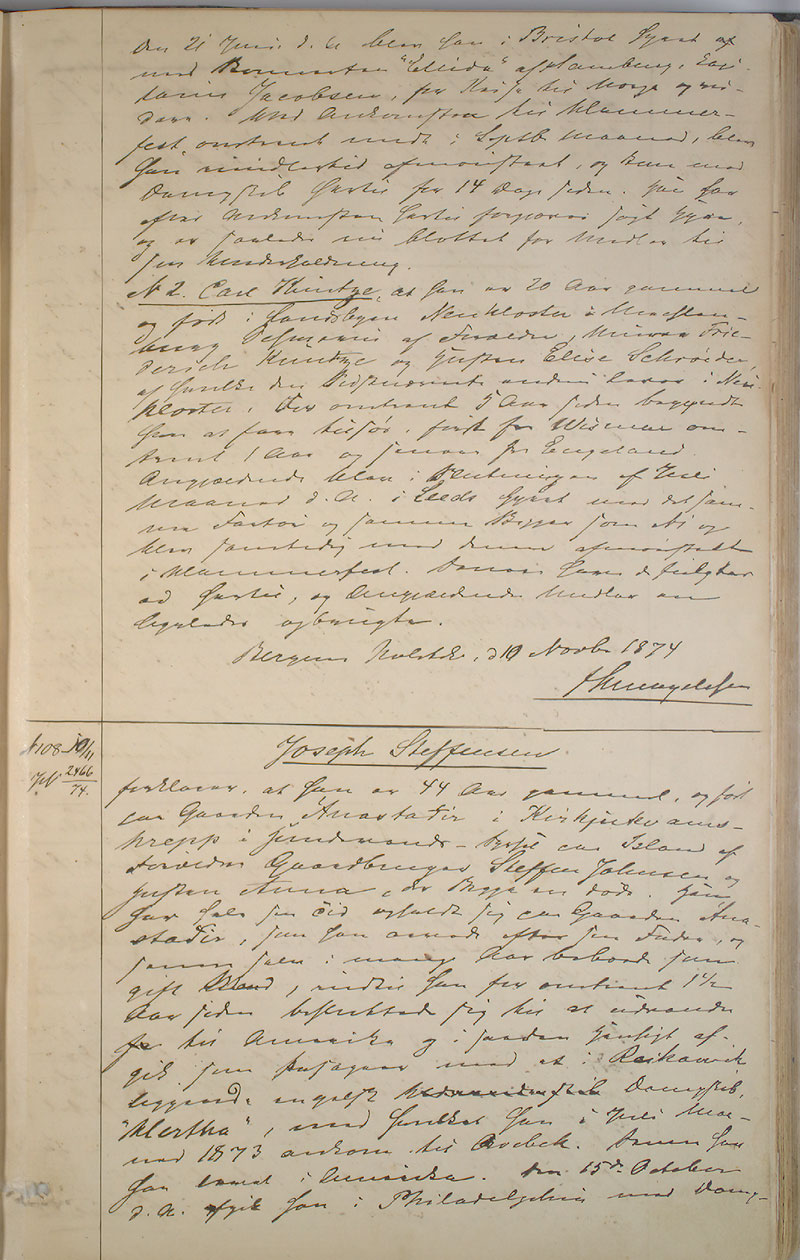 den 21 Juni d. A. blev han i Bristol hyret
med Skonnerten "Ellida" af Hamburg, Capi-
tain Jacobsen, for Reise til Norge og vi-
dere. Ved Ankomsten til Hammer-
fest, omtrent midt i Septbr Maaned, blev
han imidlertid afmønstret, og kom med
Dampskib hertil for 14 Dage siden. Han har
efter Ankomsten hertil forgjæves søgt Hyre,
og er saaledes nu blottet for Midler til
sin Underholdning.
N 2. Carl Kintze, at han er 20 Aar gammel
og født i Landsbyen Neukloster i Mecklen-
burg Schwerin af Forældre, Murer Frie-
derich Kintze og Hustru Elise Schrøder,
af hvilke den Sidstnævnte endnu lever i Neu-
kloster. For omtrent 5 Aar siden begyndte
han at fare tilsøs, først fra Wismar om-
trent 1 Aar og senere fra England.
Angjældende blev i Slutningen af Juli
Maaned d. A. i Leeds hyret med det sam-
me Fartøi og samme Reise som og
blev samtidig med denne afmønstret
i Hammerfest. Senere have de fulgtes
ad hertil, og Angjældendes Midler ere
ligeledes opbrugte.
Bergens Politik., d 10 Novbr 1874
N 108 10/11
2466
74.
Joseph Steffensen
forklarer, at han er 44 Aar gammel, og født
paa Gaarden Anastadir i Kirkjuhvams-
hrepp i Hunavands-Syssel paa Island af
Forældre Gaardbruger Steffen Johnsen og
Hustru Anna, der Begge ere døde. Han
har hele sin Tid opholdt sig paa Gaarden Ana-
stadir, som han arvede efter sin Fader, og
senere selv i mange Aar beboede som
gift Mand, indtil han for omtrent 1 1/2
Aar siden besluttede sig til at udvandre
til Amerika og i saadan Hensigt af-
gik som Passager med et i Reikavik
liggende engelsk Dampskib,
"Hertha", med hvilket han i Juli Maa-
ned 1873 ankom til Qvebek. Siden har
han været i Amerika. Den 15de October
d. A. afgik han i Philadelphia med Damp-